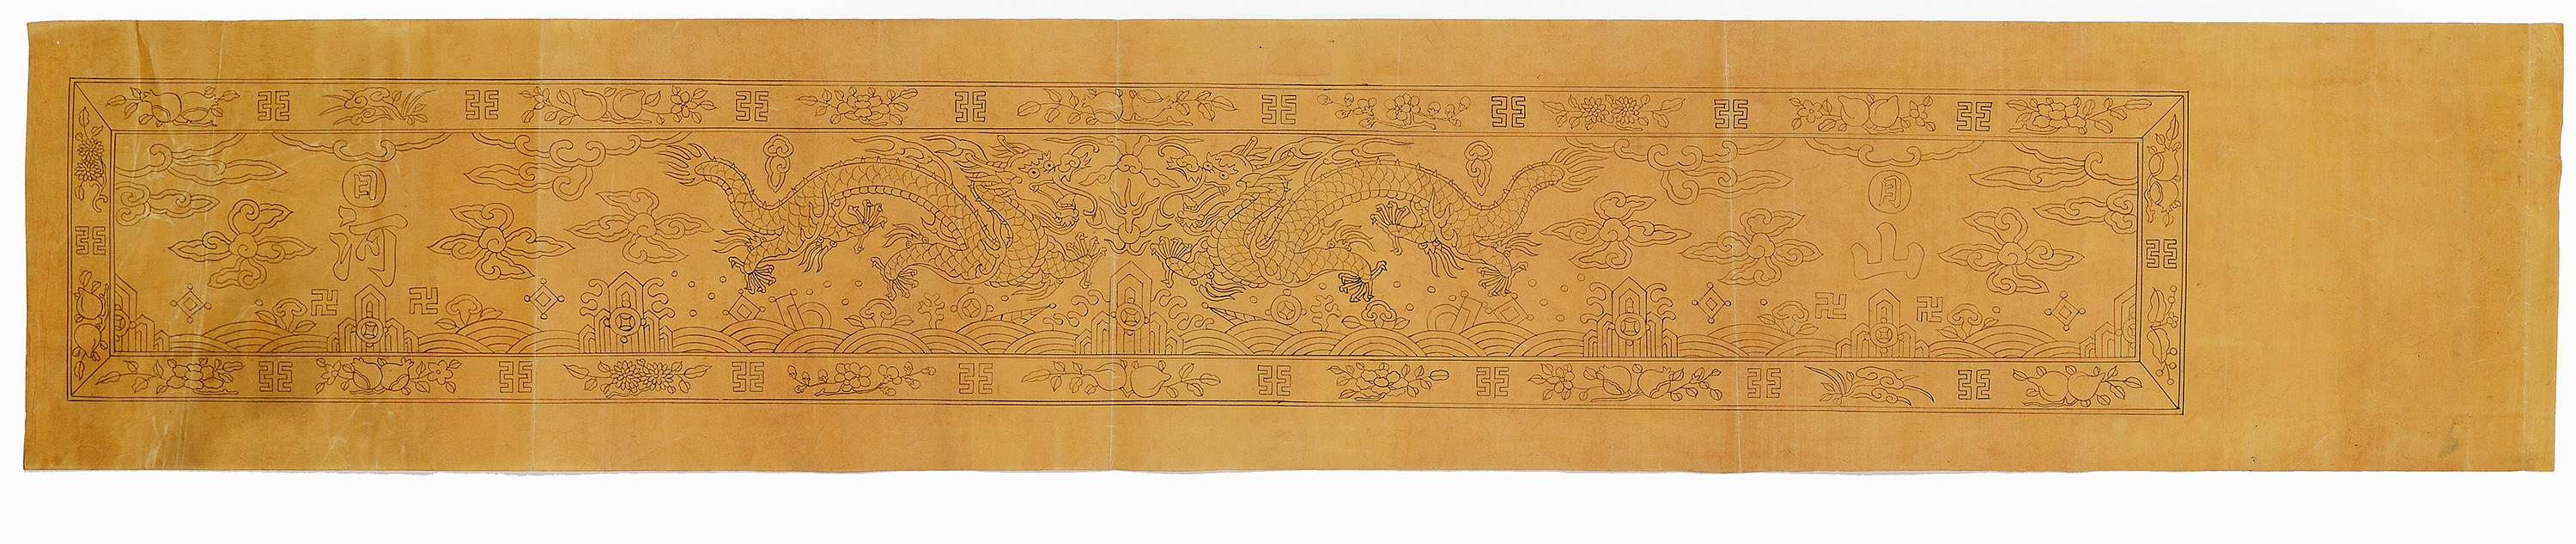 日
河
月
山